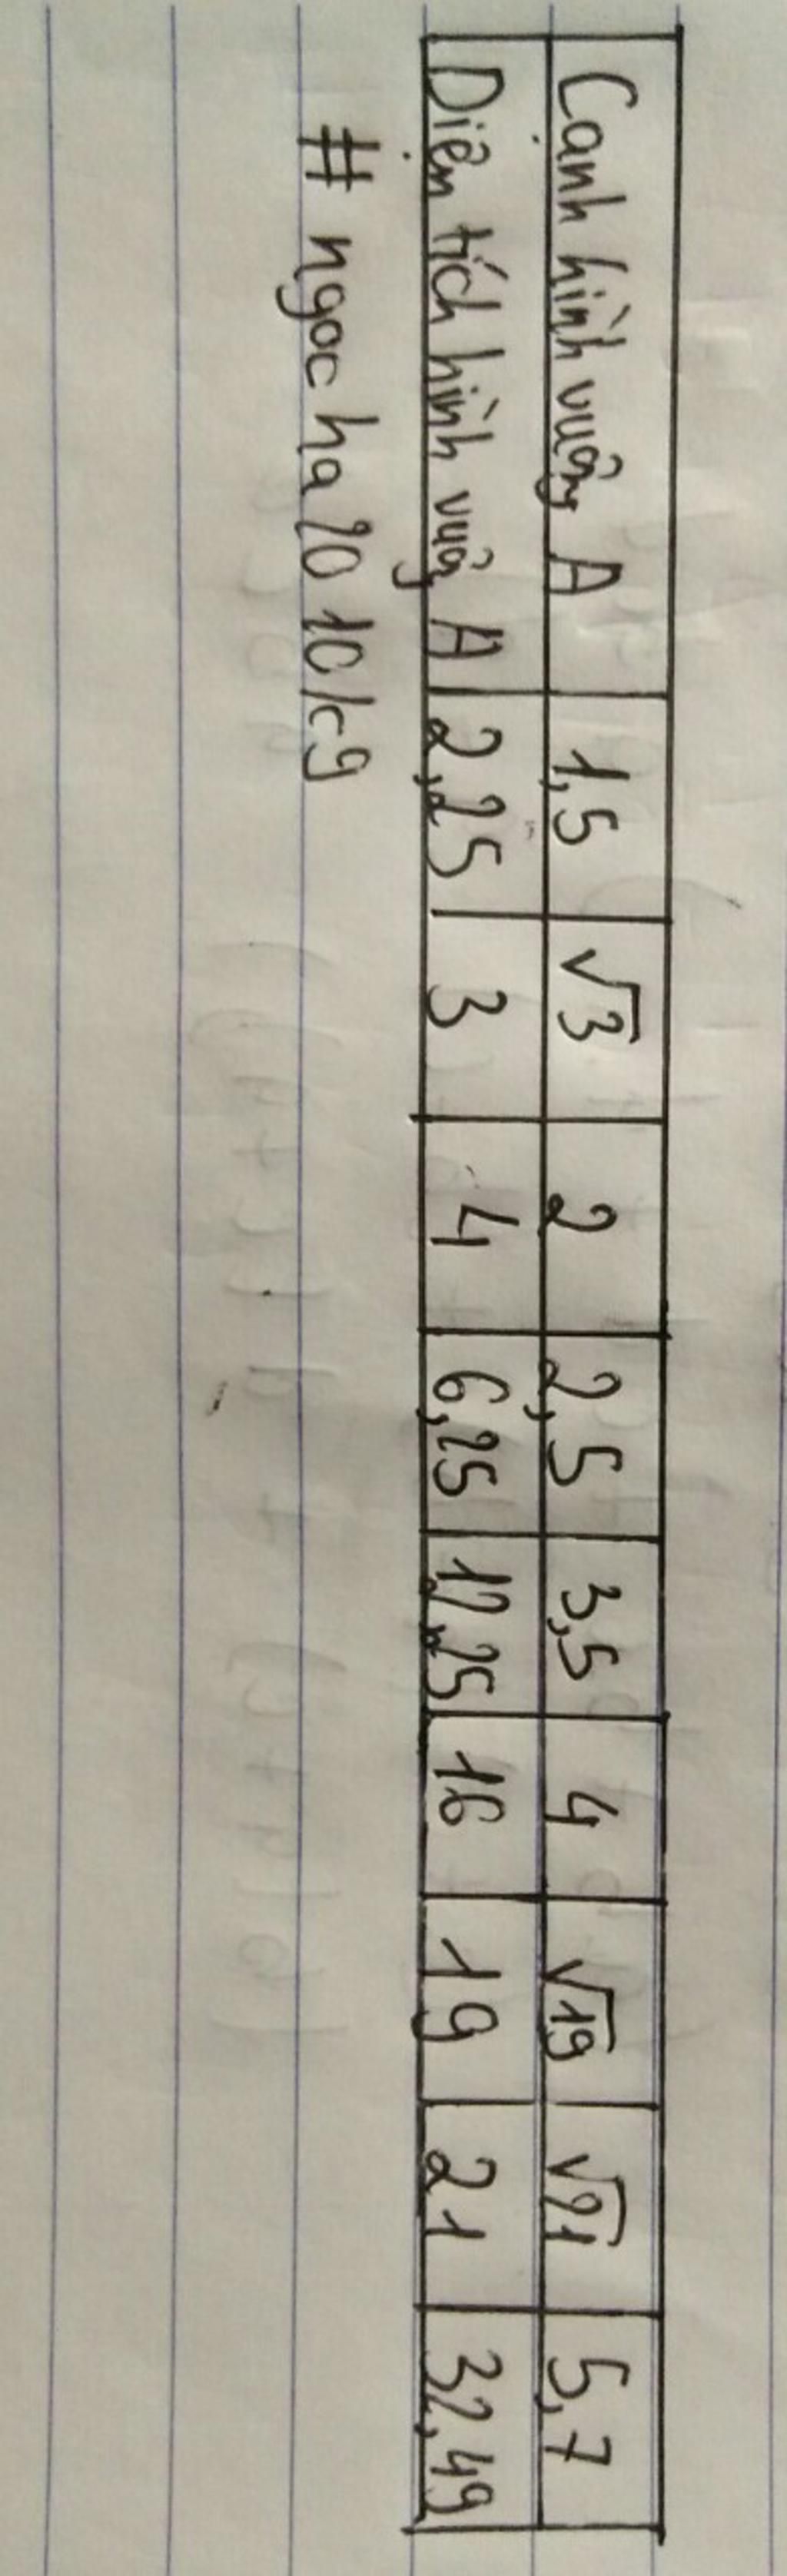 Cạnh hình vuông A 1,5 √3 2 2,5 3,5 4 √19 √21 5,7
Diện tích hình vuông A 2,25 3 4 6,25 12,25 16 19 21 32,49
# ngocha2010lc9